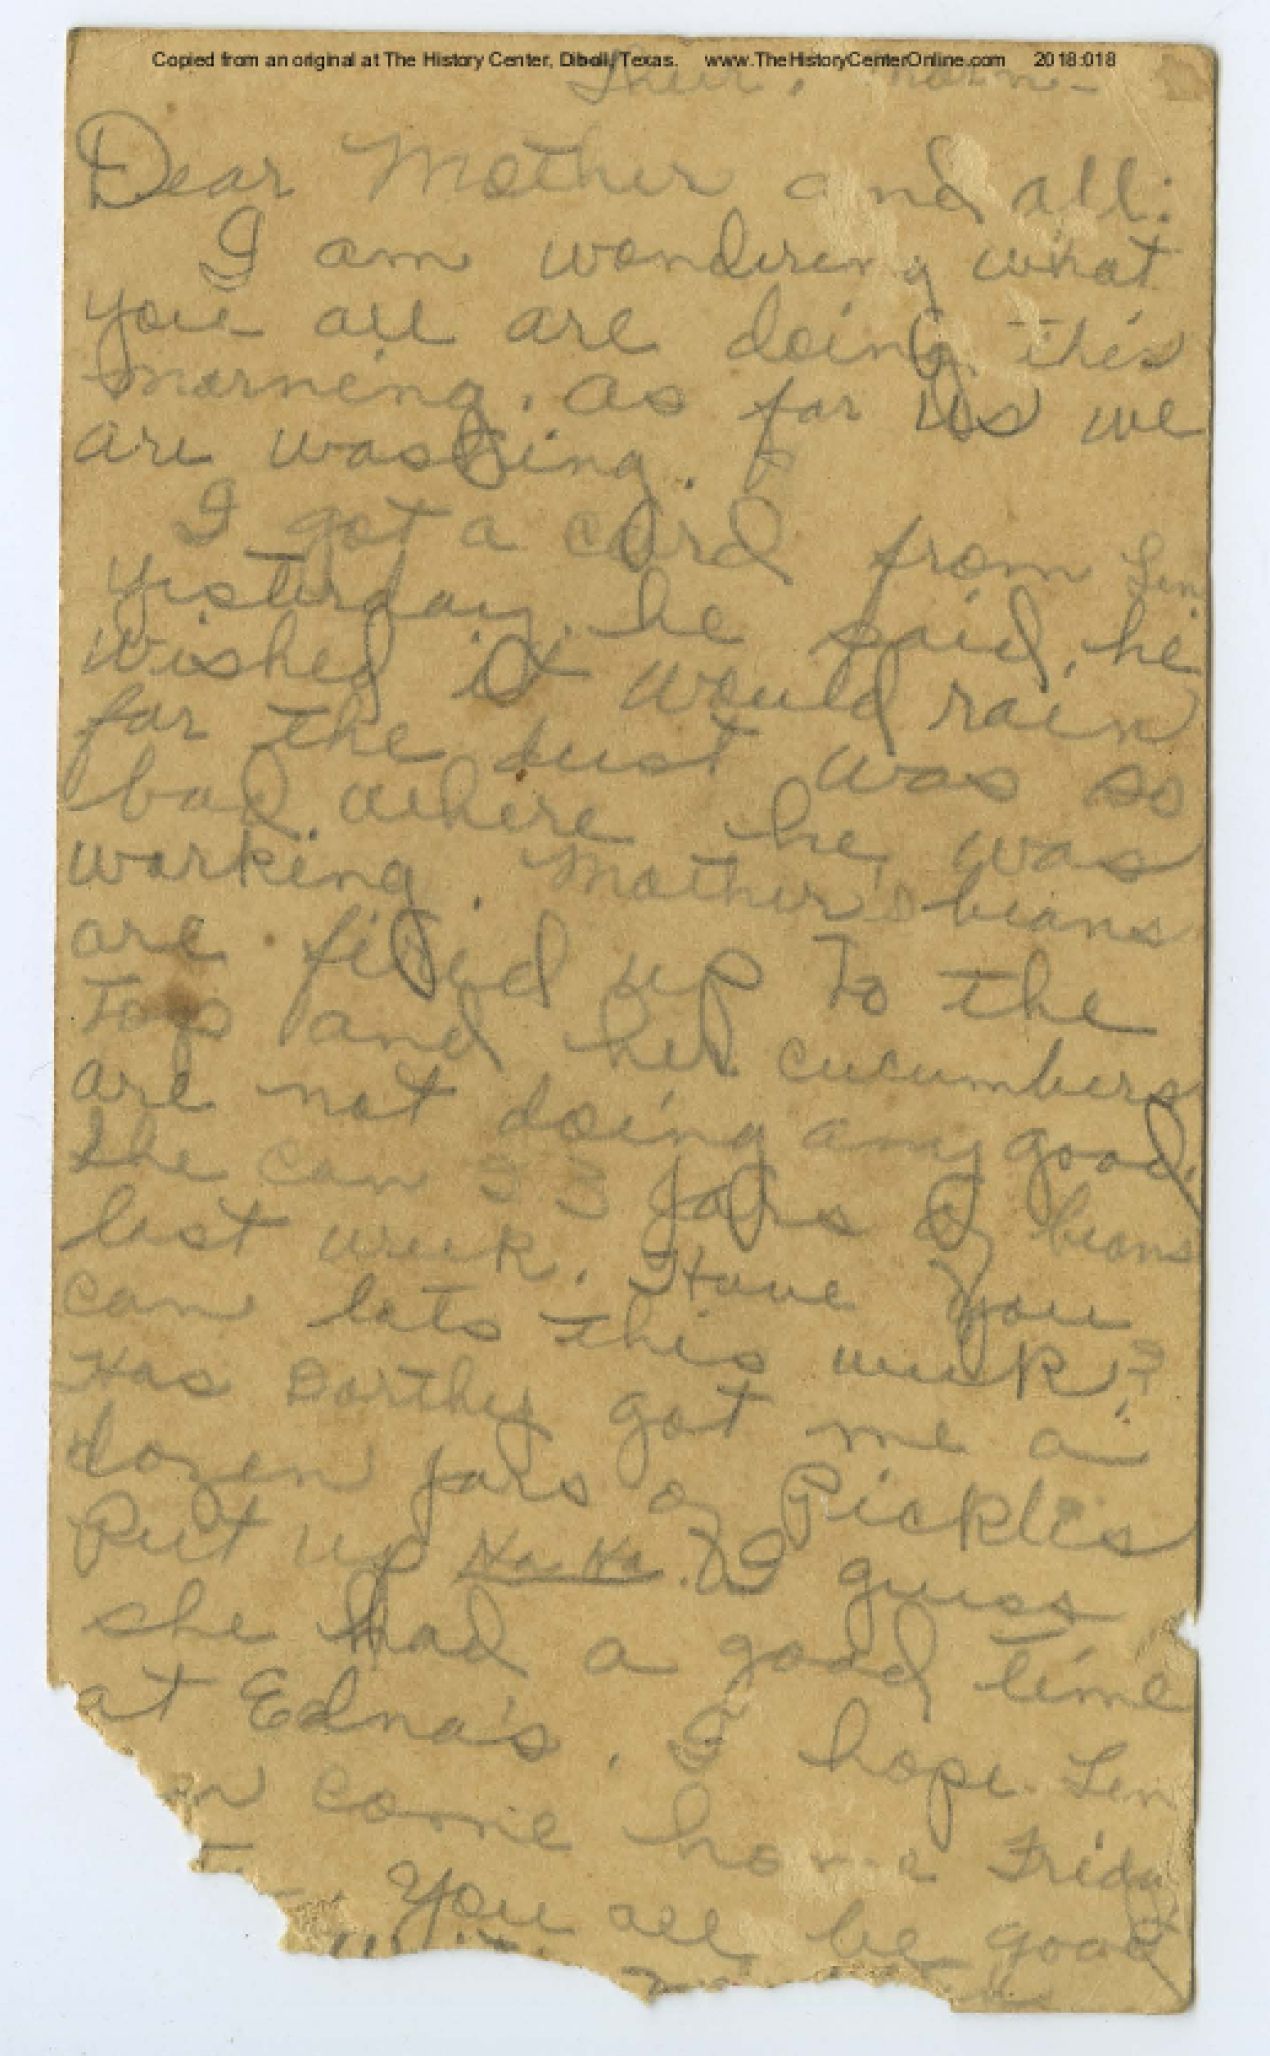 Copied from an original at The History Center, Diboll, Texas. www.TheHistoryCenterOnline.com 2018:018
Thur. Morn-
Dear Mother and all:
I am wondering what
you all are doing this
morning. As for us we
are washing.
I got a card from Len
yesterday, he said, he
wished it would rain
for the dust was so
bad where he was
working. Mother's beans
are filled up to the
top and her cucumbers
are not doing any good.
She can 33 jars of beans
last week. Have you
can lots this week?
Has Dorthy got me a
dozen jars of Pickles
Put up Ha Ha. I guess
she had a good time
at Edna's. I hope Len
come home Friday
You all be good